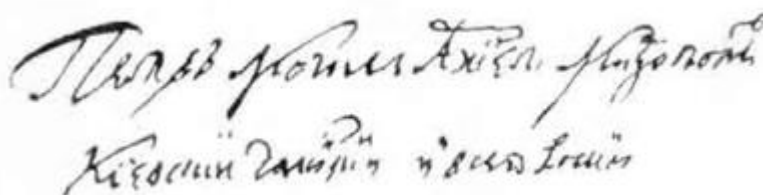 Петръ Могила Архїеп: Митрополи
Кїевскїй Галицкїй и всея Россїи